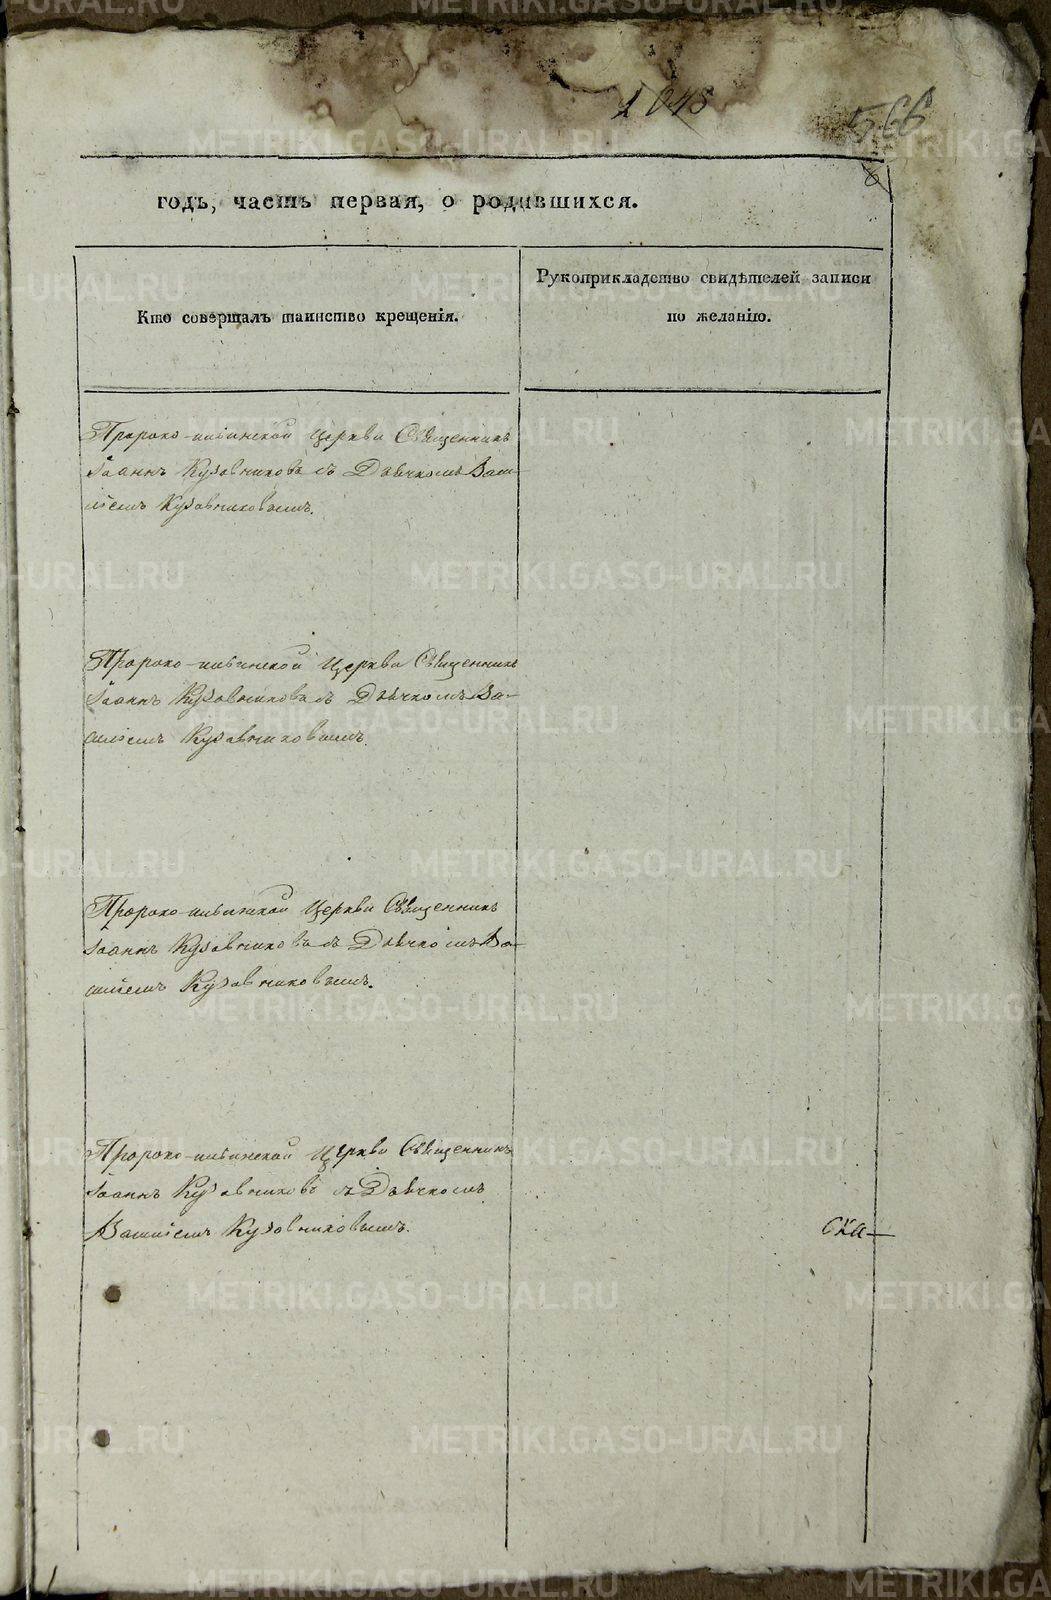 1045
566
6
годъ, часть первая, о родившихся.
Кто совершалъ таинство крещенія.
Рукоприкладство свидѣтелей записи
по желанію.
Пророко-ильинской Церкви Священникъ
Іоаннъ Кузовниковъ съ Дьячкомъ Васи-
ліемъ Кузовниковымъ.
Пророко-ильинской Церкви Священникъ
Іоаннъ Кузовниковъ съ Дьячкомъ Ва-
силіемъ Кузовниковымъ.
Пророко-ильинской Церкви Священникъ
Іоаннъ Кузовниковъ съ Дьячкомъ Ва-
силіемъ Кузовниковымъ.
Пророко-ильинской Церкви Священникъ
Іоаннъ Кузовниковъ съ Дьячкомъ
Василіемъ Кузовниковымъ.
METRIKI.GASO-URAL.RU